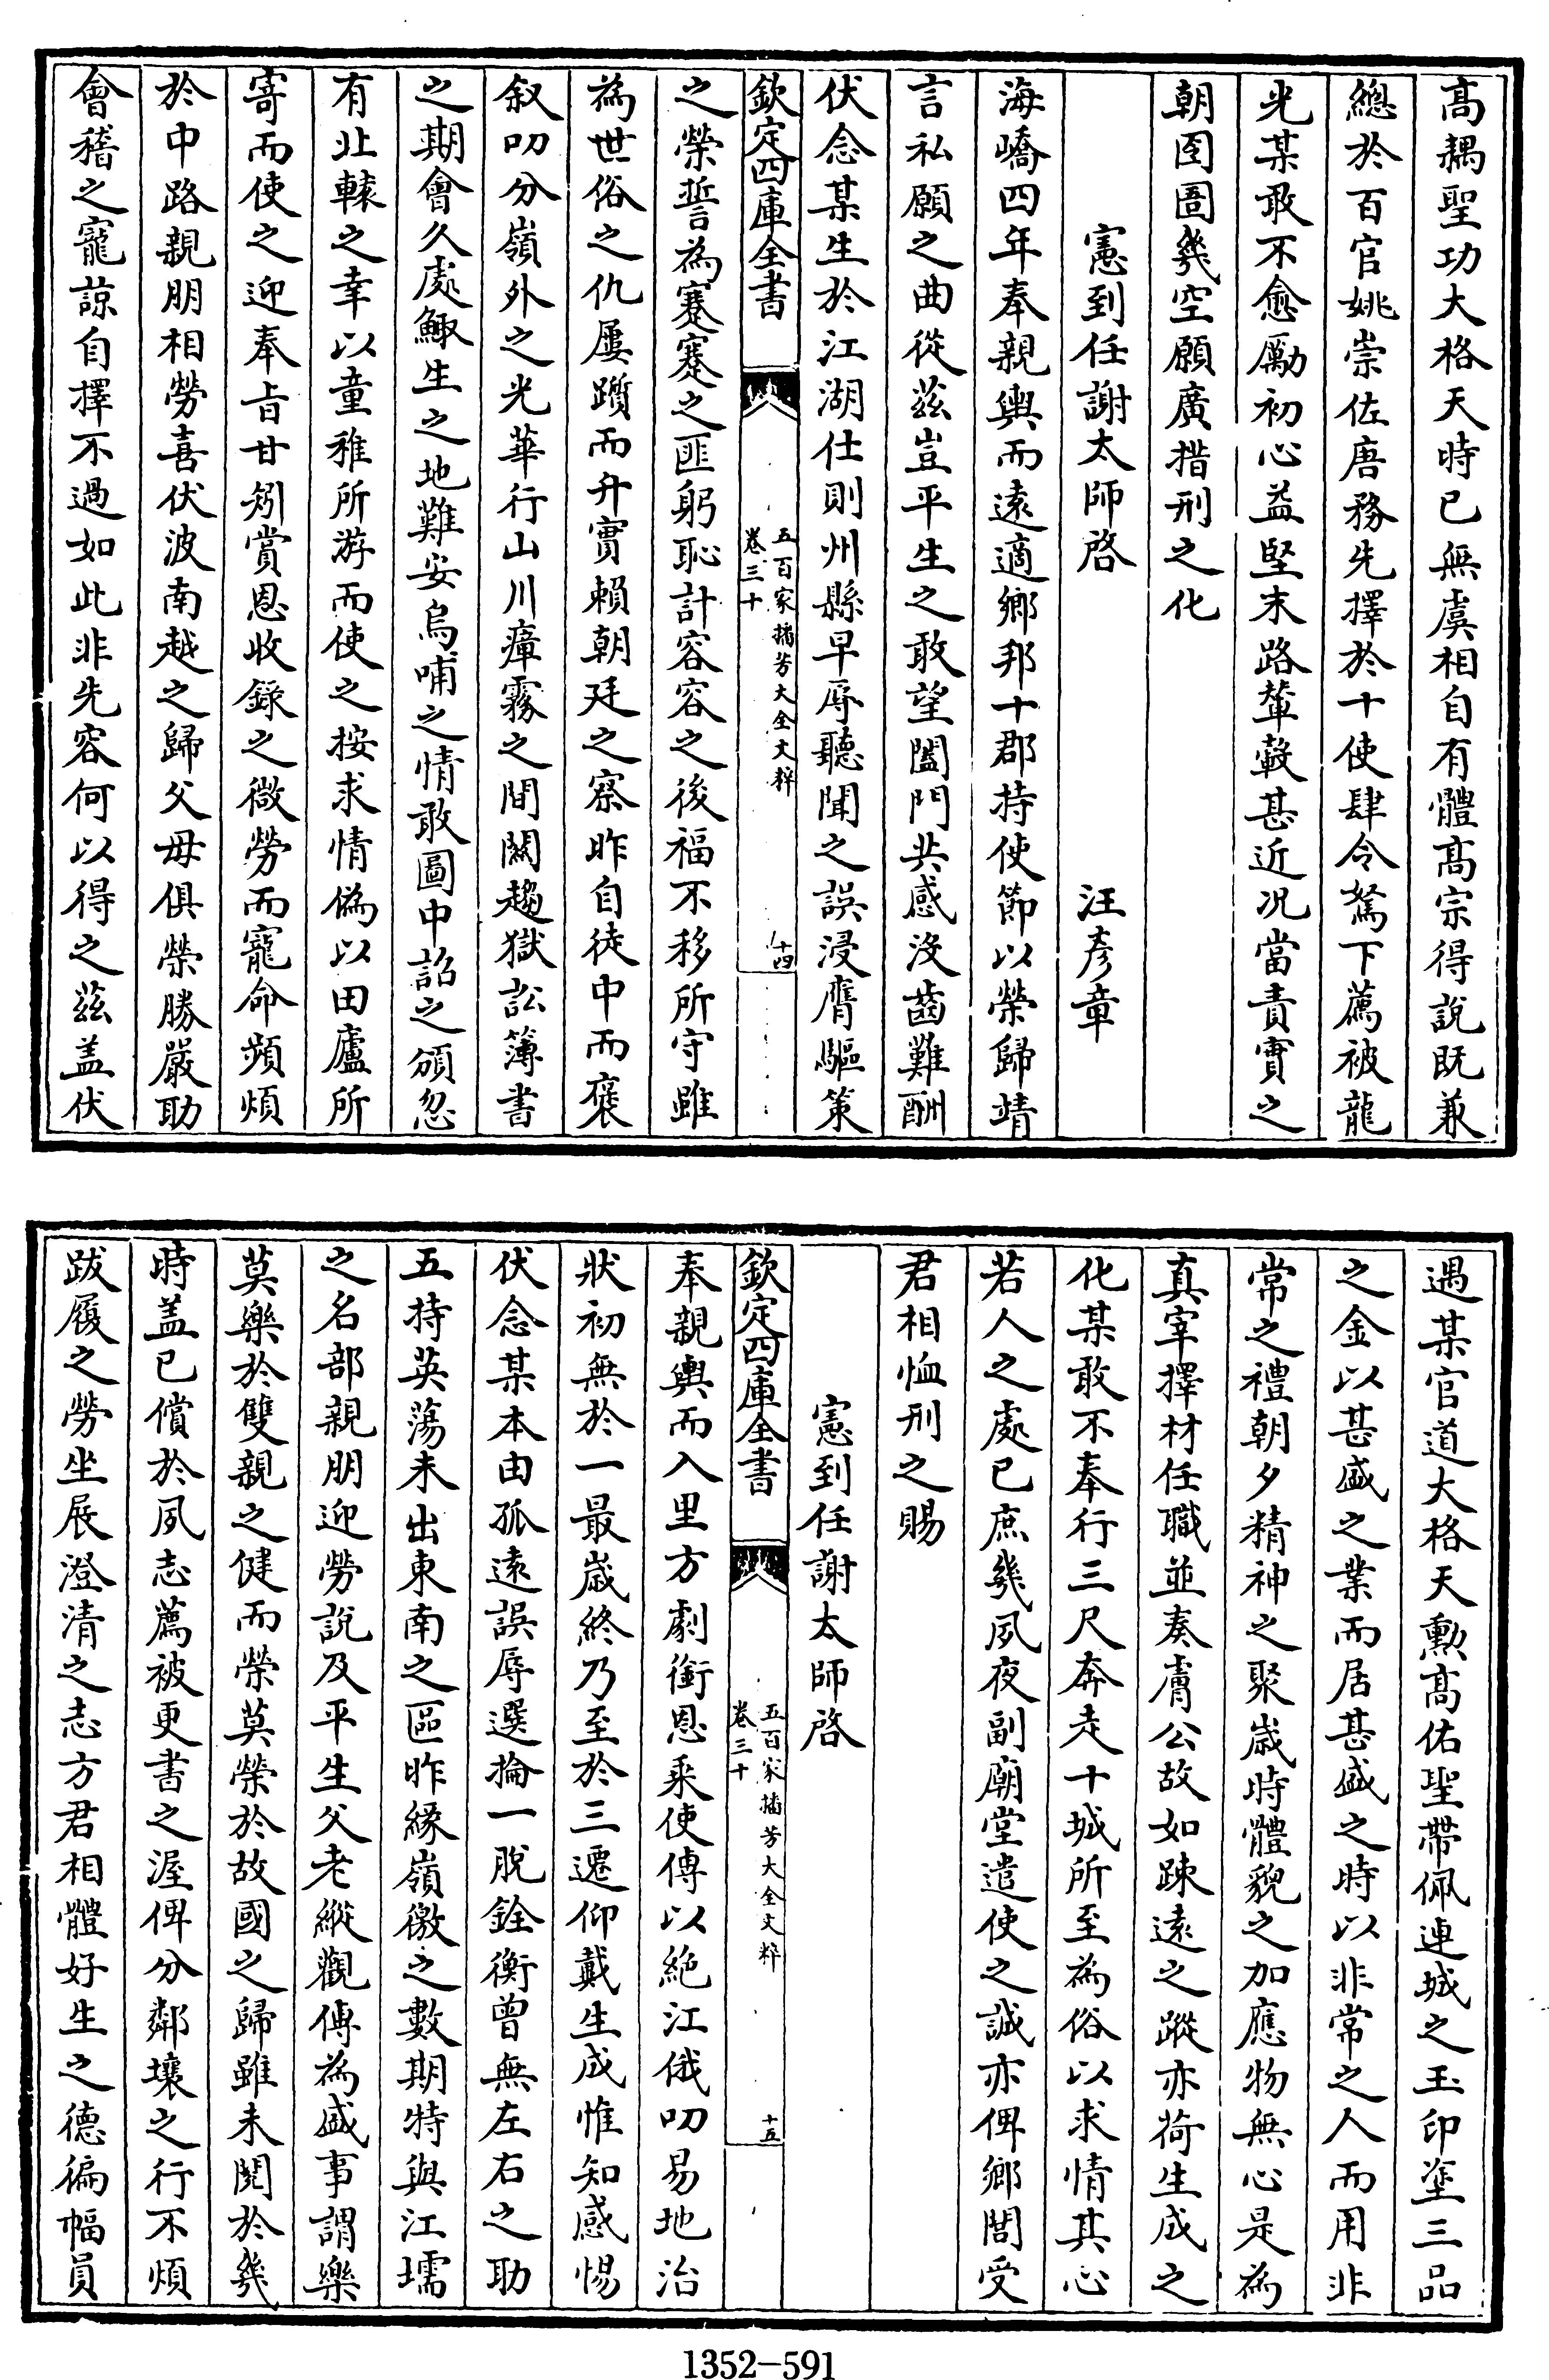 高耦聖功大格天時已無虞相自有體髙宗得說旣兼
總於百官姚崇佐唐務先擇於十使肆令駑下薦被龍
光某敢不愈勵初心益堅末路輦轂甚近况當責實之
朝囹圄幾空願廣措刑之化
憲到任謝太師啓　汪彥章
海嶠四年奉親輿而逺適鄉邦十郡持使節以榮歸靖
言私願之曲從兹豈平生之敢望闔門共感沒齒難酬
伏念某生於江湖仕則州縣早辱聽聞之誤浸膺驅策
欽定四庫全書　五百家播芳大全文粹　卷三十　十四
之榮誓為蹇蹇之匪躬恥計容容之後福不移所守雖
為世俗之仇屢躓而升實賴朝廷之察昨自徒中而褒
叙叨分嶺外之光華行山川瘴霧之間闕趨獄訟簿書
之期會久處鯫生之地難安烏哺之情敢圖中詔之頒忽
有北轅之幸以童稚所游而使之按求情僞以田廬所
寄而使之迎奉旨甘矧賞恩收錄之微勞而寵命頻煩
於中路親朋相勞喜伏波南越之歸父母俱榮勝嚴助
會稽之寵諒自擇不過如此非先容何以得之兹盖伏
遇某官道大格天勲髙佑聖帶佩連城之玉印塗三品
之金以甚盛之業而居甚盛之時以非常之人而用非
常之禮朝夕精神之聚歲時體貌之加應物無心是為
真宰擇材任職並奏膚公故如踈逺之蹤亦荷生成之
化某敢不奉行三尺奔走十城所至為俗以求情其心
若人之處已庶幾夙夜副廟堂遣使之誠亦俾鄉閭受
君相恤刑之賜
憲到任謝太師啓
欽定四庫全書　五百家播芳大全文粹　卷三十　十五
奉親輿而入里方劇銜恩乘使傳以絶江俄叨易地治
狀初無於一最歲終乃至於三遷仰戴生成惟知感惕
伏念某本由孤逺誤辱選掄一脫銓衡曾無左右之助
五持英蕩未出東南之區昨緣嶺徼之數期特與江壖
之名部親朋迎勞說及平生父老縱觀傳為盛事謂樂
莫樂於雙親之健而榮莫榮於故國之歸雖未閱於幾
時盖已償於夙志薦被更書之渥俾分鄰壤之行不煩
跋履之勞坐展澄清之志方君相體好生之德徧幅員
1352-591